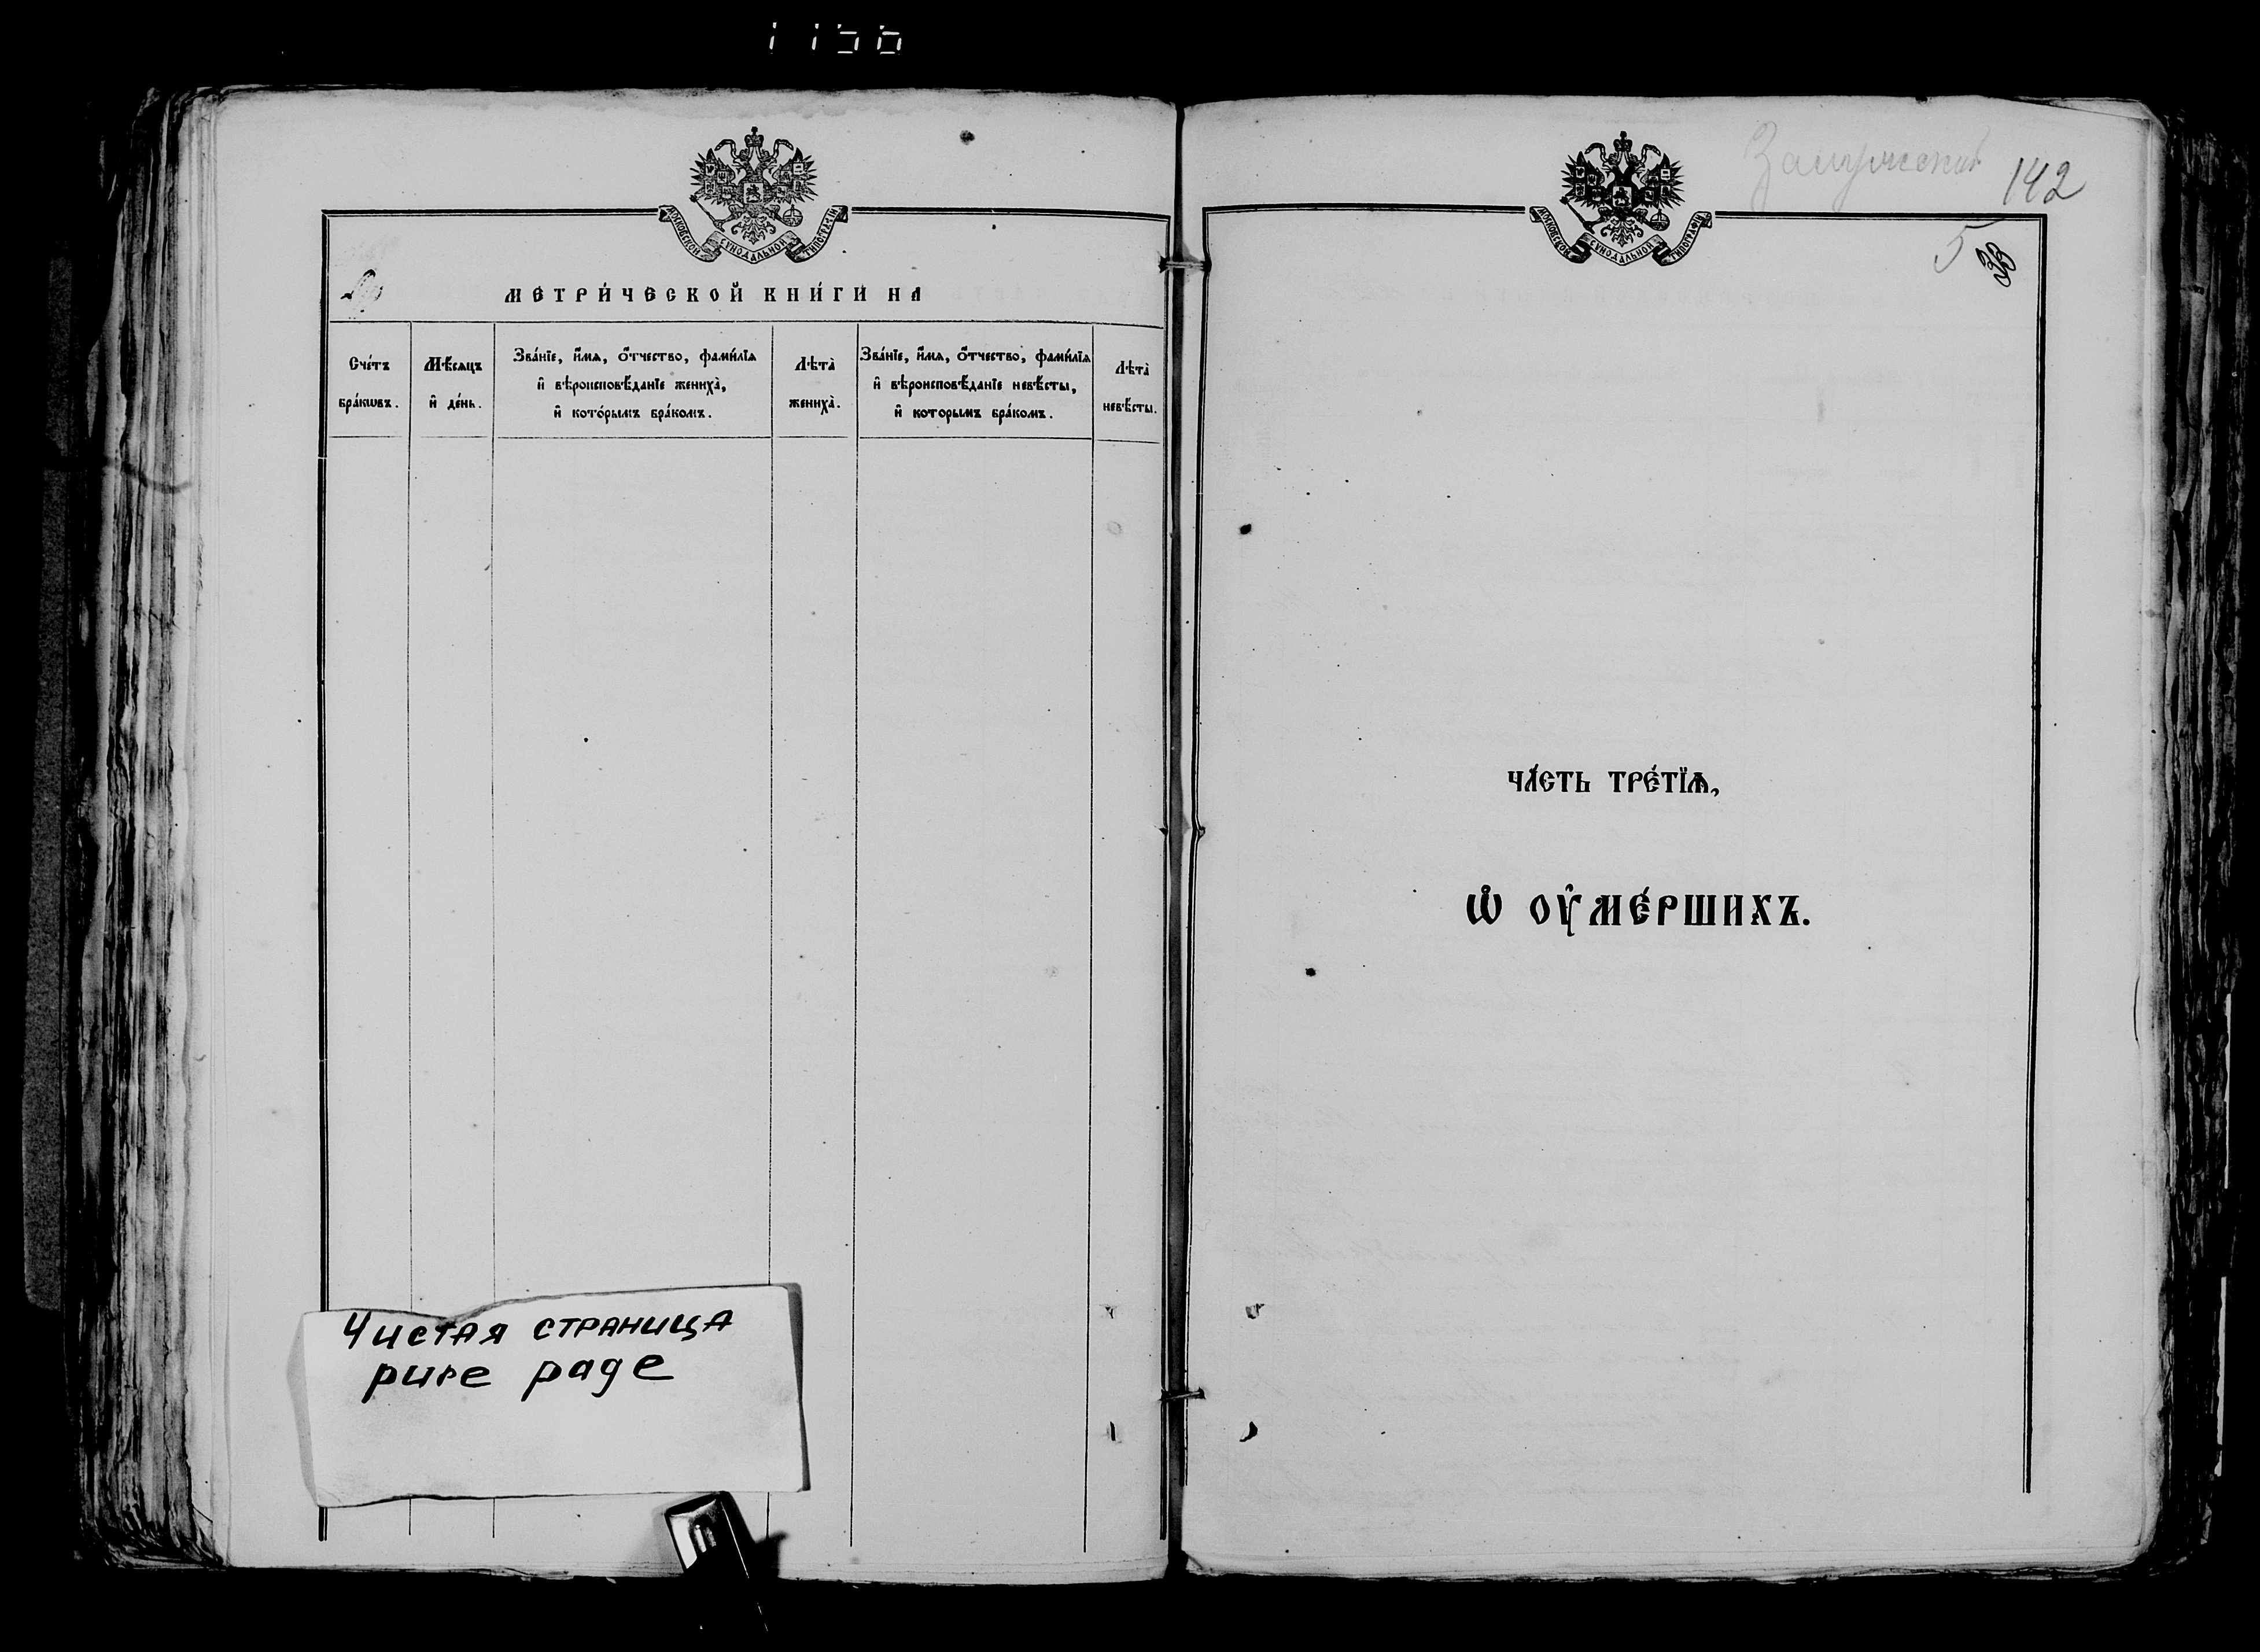 1156
МОСКОВСКОЙ СѴНОДАЛЬНОЙ ТИПОГРАФІИ
МЕТРИ́ЧЕСКОЙ КНИ́ГИ НА
Сче́тъ
бра́кѡвъ.
Мѣ́сяцъ
и҆ де́нь.
Зва́нїе, и҆́мѧ, ѻ҆́тчество, фами́лїѧ
и҆ вѣроисповѣ́данїе женихà,
и҆ кото́рымъ бра́комъ.
Лѣтà
женихà.
Зва́нїе, и҆́мѧ, ѻ҆́тчество, фами́лїѧ
и҆ вѣроисповѣ́данїе невѣ́сты,
и҆ которымъ бра́комъ.
Лѣтà
невѣ́сты.
Чистая страница
pure page
142
МОСКОВСКОЙ СѴНОДАЛЬНОЙ ТИПОГРАФІИ
5
ЧА́СТЬ ТРЕ́ТЇѦ,
Ѡ҆ ОУ҆МЕ́РШИХЪ.